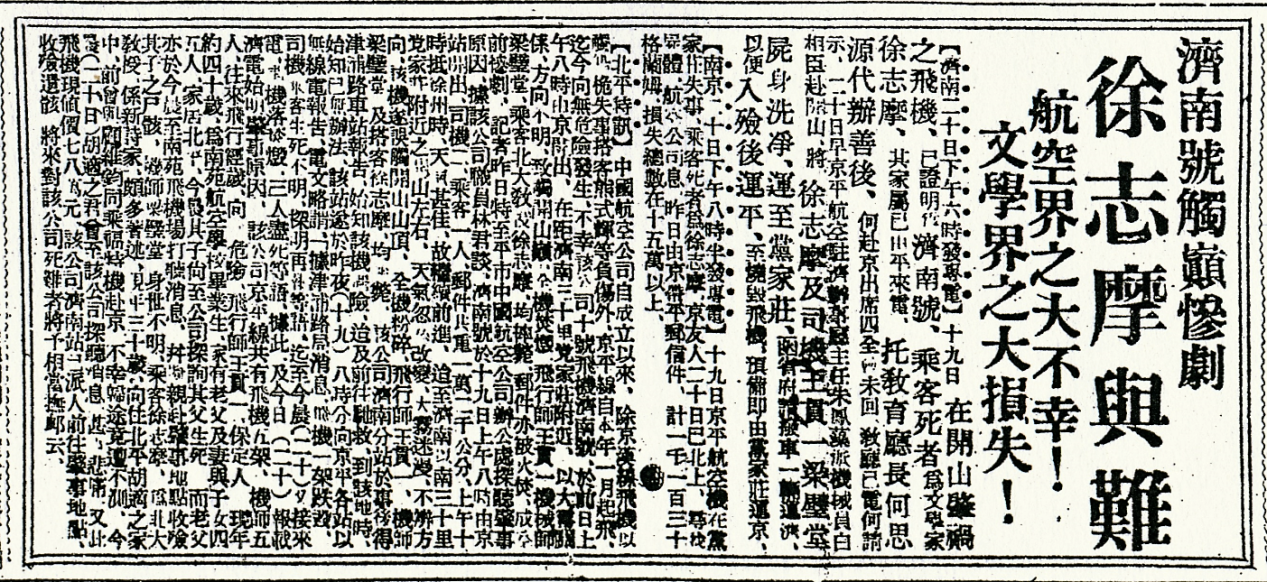 濟南號觸巔慘劇
徐志摩與難
航空界之大不幸！
文學界之大損失！
【濟南二十日下午六時發專電】十九日在開山肇禍
之飛機、已證明係濟南號、乘客死者爲文學家
徐志摩、其家屬已由平來電、托敎育廳長何思
源代辦善後、何赴京出席四全會未回、敎廳已電何請
示、二十日早京平航空駐濟辦事處主任朱鳳藻派機械員白
相臣赴開山、將徐志摩及司機王貫一梁璧堂
屍身洗凈、運至黨家莊、
以便入殮後運平、至燒毀飛機、預備即由黨家莊運京、
【南京二十日下午八時半發專電】十九日京平航空機在黨
家莊失事、乘客死者爲徐志摩、京友人二十日已北上、尋找
屍體、航空公司息、昨日由京帶平郵信件、計一千一百三十
格蘭姆、損失總數在十五萬以上、
【北平特訊】中國航空公司自成立以來、除京漢綫飛機以
觸桅失事搭客熊式輝等負傷外、京平線自本年一月起飛、
迄今向無危險發生、不幸該公司十號飛機濟南號、於前日上
午八時由京開出、在距濟南三十里党家莊附近、以大霧關
係、方向不明、致觸開山巔、全機焚燬、飛行師王貫一機械師
梁璧堂、乘客北大敎授徐志摩、均掉斃、郵件亦被火焚、成空
前慘劇、記者昨日特至平市中國航空公司辦公處探聽肇事
原因、據該公司職員林君談、濟南號於十九日上午八時由京
站開出、司機二人、乘客一人、郵件共重一萬二千公分、上午十
時抵徐州時、天氣甚佳、故繼續前進、迨至濟南以南三十里
党家莊附近之開山左右、天氣忽然改變、大霧迷漫、不辨方
向、該機遂誤觸開山山頂、全機粉碎、飛行師王貫一、機械師
梁璧堂、及搭客徐志摩、均斃、該公司濟南分站於事後得
津浦路車站報告、始知該機遇險、迨及前往馳救、到該地時、
始知已無辦法、該站遂於昨夜（十九）八時分向京平各站以
無線電報告、電文略謂「據津浦路局消息、飛機一架跌毀、
司機、乘客生死不明、探明再告」等語、迄至今晨（二十）又接來
電、「機落焚燬、三人盡死」等語、據此、及今日（二十）報載
濟電、始明肇事原因、該公司京平線共有飛機五架、機師五
人、往來飛行經歲、向無危險、飛行師王貫一、保定人、現年
約四十歲、爲南苑航空學校畢業生、家有老父及妻與子女四
五人、家居北平、今晨其子尙至公司探詢其父生死、而老父
亦於今晨至南苑飛機場打聽消息、幷擬親赴肇事地點收殮
其子之屍骸、機師梁璧堂、身世不明、乘客徐志摩、爲北大
敎授、係新詩家、頗多著述、現年三十三歲、向住北平胡適之家
中、前曾與顧維鈞同乘福特機赴京、不幸歸途竟遭不測、今
晨（二十日）胡適之君曾至該公司探聽消息、甚爲悲痛、又此
飛機現值價七八萬元、該公司濟南站已派人前往肇事地點、
收殮遺骸、將來對該公司死難者將予相當撫卹云、